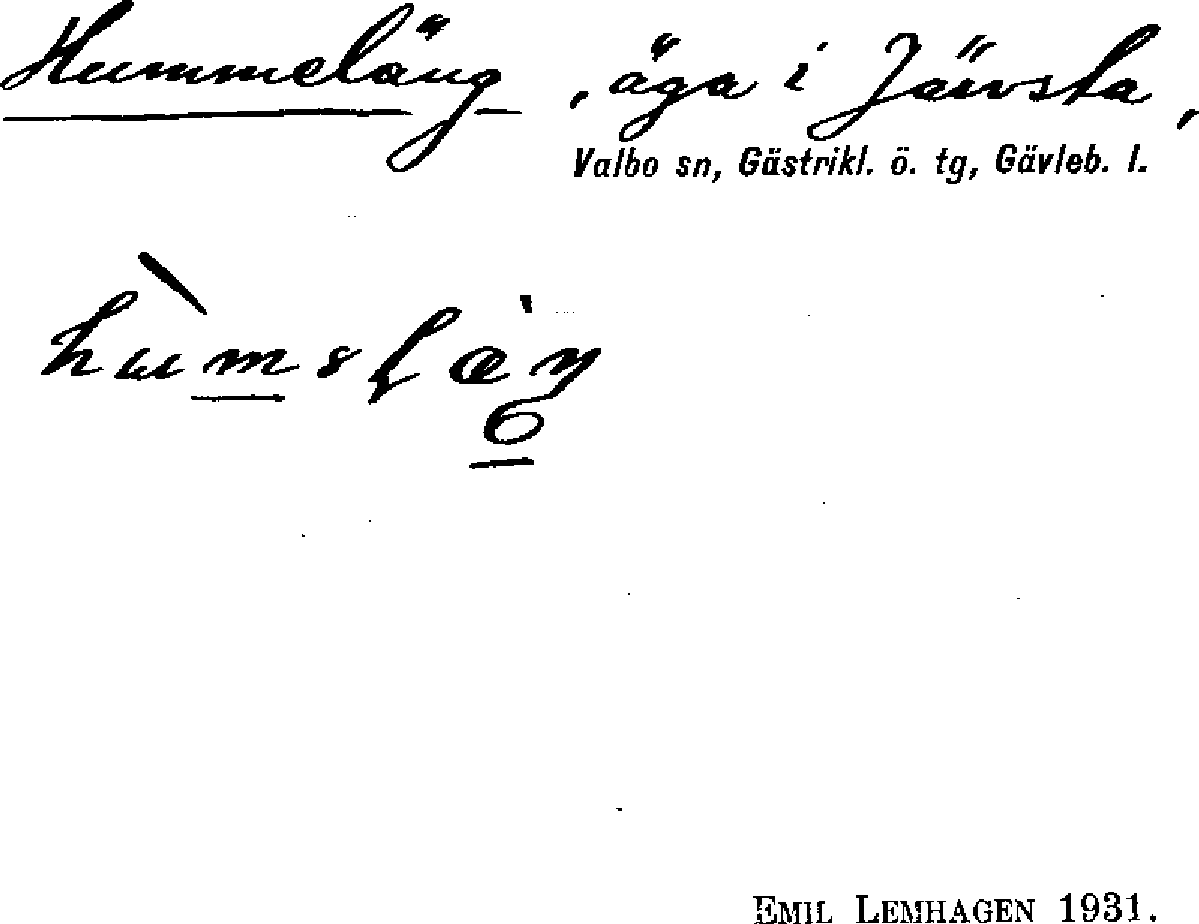 Hummeläng, äga i Järvsta,
Valbo sn, Gästrikl. ö. tg, Gävleb. l.
EMIL LEMHAGEN 1931.